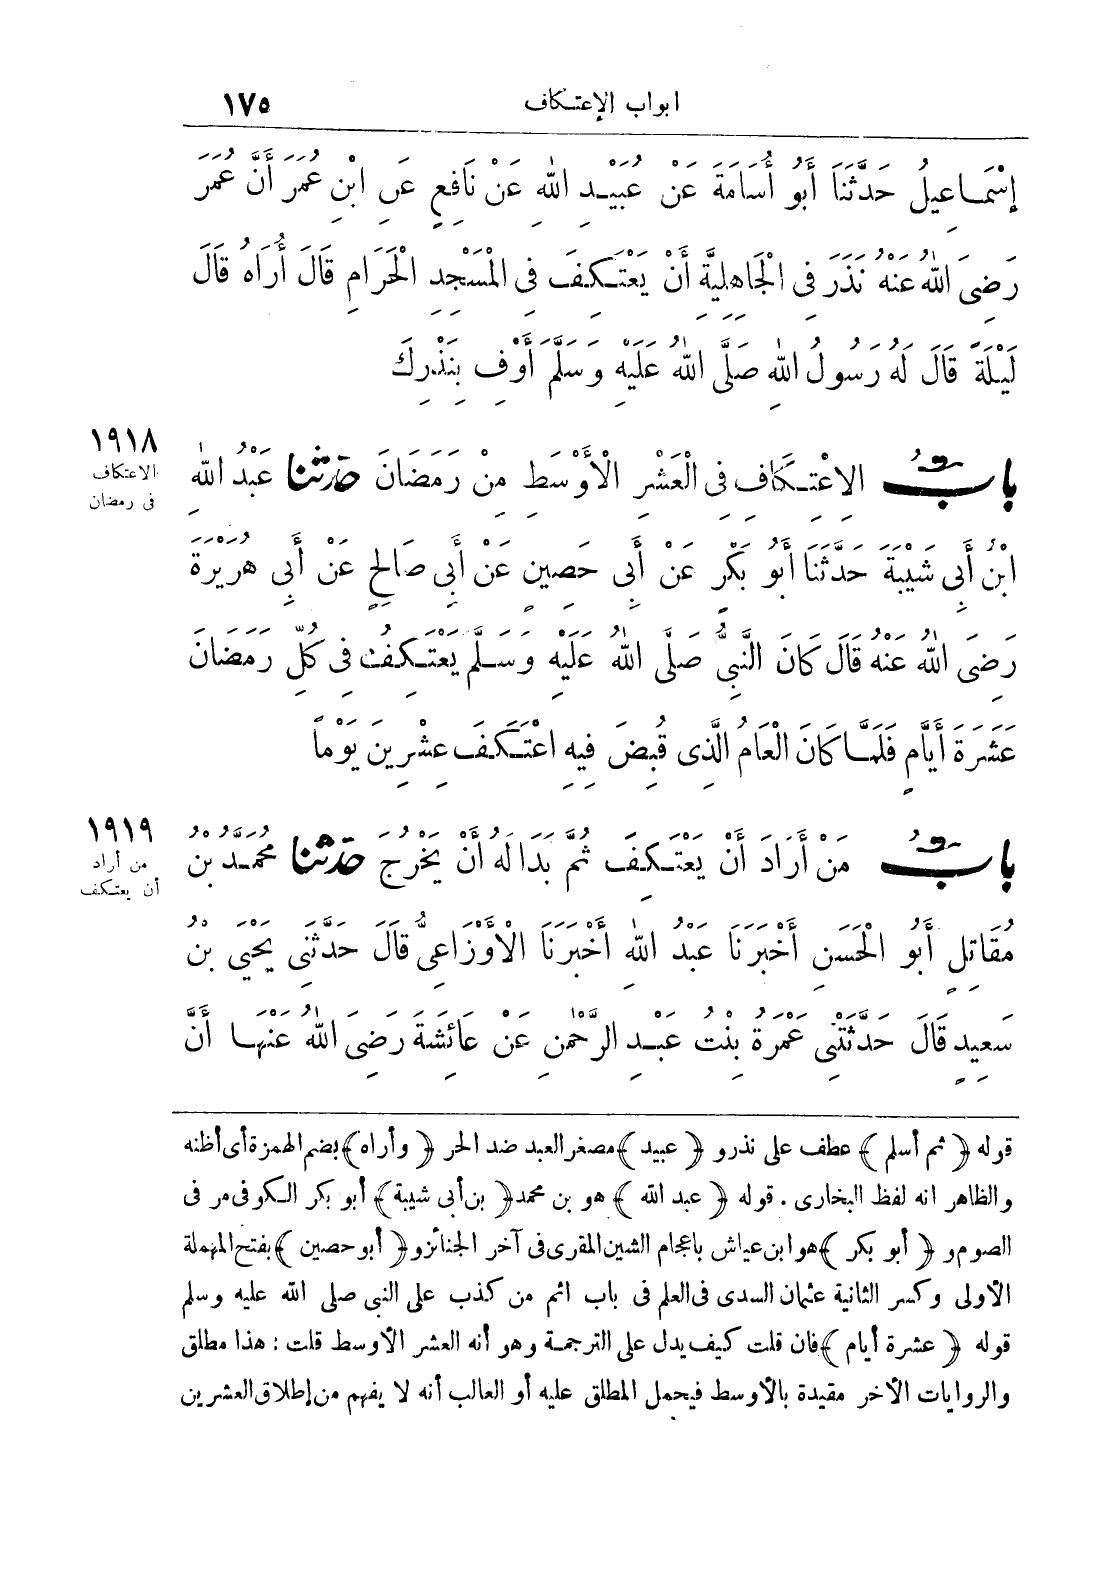 ابواب الإعتكاف ١٧٥
إِسْمَاعِيلُ حَدَّثَنَا أَبُو أُسَامَةَ عَنْ عُبَيْدِ اللهِ عَنْ نَافِعٍ عَنِ ابْنِ عُمَرَ أَنَّ عُمَرَ
رَضِىَ اللهُ عَنْهُ نَذَرَ فِى الْجَاهِلِيَّةِ أَنْ يَعْتَكِفَ فِى الْمَسْجِدِ الْحَرَامِ قَالَ أُرَاهُ قَالَ
لَيْلَةً قَالَ لَهُ رَسُولُ اللهِ صَلَّى اللهُ عَلَيْهِ وَسَلَّمَ أَوْفِ بِنَذْرِكَ
١٩١٨
الاعتكاف
فى رمضان
بابُ الاِعْتِكَافِ فِى الْعَشْرِ الْأَوْسَطِ مِنْ رَمَضَانَ حدثنا عَبْدُ اللهِ
ابْنُ أَبِى شَيْبَةَ حَدَّثَنَا أَبُو بَكْرٍ عَنْ أَبِى حَصِينٍ عَنْ أَبِى صَالِحٍ عَنْ أَبِى هُرَيْرَةَ
رَضِىَ اللهُ عَنْهُ قَالَ كَانَ النَّبِىُّ صَلَّى اللهُ عَلَيْهِ وَسَلَّمَ يَعْتَكِفُ فِى كُلِّ رَمَضَانَ
عَشَرَةَ أَيَّامٍ فَلَمَّا كَانَ الْعَامُ الَّذِى قُبِضَ فِيهِ اعْتَكَفَ عِشْرِينَ يَوْمًا
١٩١٩
من أراد
أن يعتكف
بابُ مَنْ أَرَادَ أَنْ يَعْتَكِفَ ثُمَّ بَدَا لَهُ أَنْ يَخْرُجَ حدثنا مُحَمَّدُ بْنُ
مُقَاتِلٍ أَبُو الْحَسَنِ أَخْبَرَنَا عَبْدُ اللهِ أَخْبَرَنَا الْأَوْزَاعِىُّ قَالَ حَدَّثَنِى يَحْيَى بْنُ
سَعِيدٍ قَالَ حَدَّثَتْنِى عَمْرَةُ بِنْتُ عَبْدِ الرَّحْمٰنِ عَنْ عَائِشَةَ رَضِىَ اللهُ عَنْهَا أَنَّ
قوله ﴿ ثم أسلم ﴾ عطف على نذر و ﴿ عبيد ﴾ مصغر العبد ضد الحر ﴿ وأراه ﴾ بضم الهمزة أى أظنه
والظاهر انه لفظ البخارى . قوله ﴿ عبد الله ﴾ هو بن محمد ﴿ بن أبى شيبة ﴾ أبو بكر الكوفى مر فى
الصوم و ﴿ أبو بكر ﴾ هو ابن عياش باعجام الشين المقرى فى آخر الجنائز و ﴿ أبو حصين ﴾ بفتح المهملة
الأولى وكسر الثانية عثمان السدى فى العلم فى باب اثم من كذب على النبى صلى الله عليه وسلم
قوله ﴿ عشرة أيام ﴾ فان قلت كيف يدل على الترجمة وهو أنه العشر الأوسط قلت : هذا مطلق
والروايات الأخر مقيدة بالأوسط فيحمل المطلق عليه أو الغالب أنه لا يفهم من إطلاق العشرين